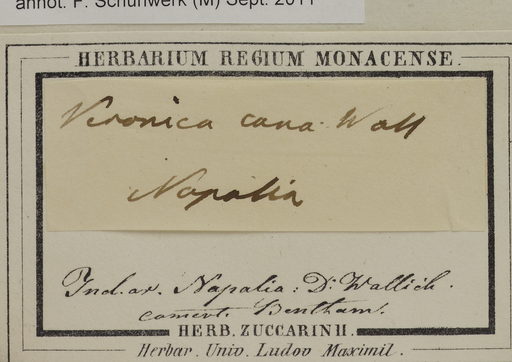 annot. F. Schuhwerk (M) Sept. 2011
HERBARIUM REGIUM MONACENSE.
Veronica cana Wall
Napalia
Ind. or. Napalia: Dr. Wallich.
comm. Bentham.
HERB. ZUCCARINII.
Herbar. Univ. Ludov Maximil.